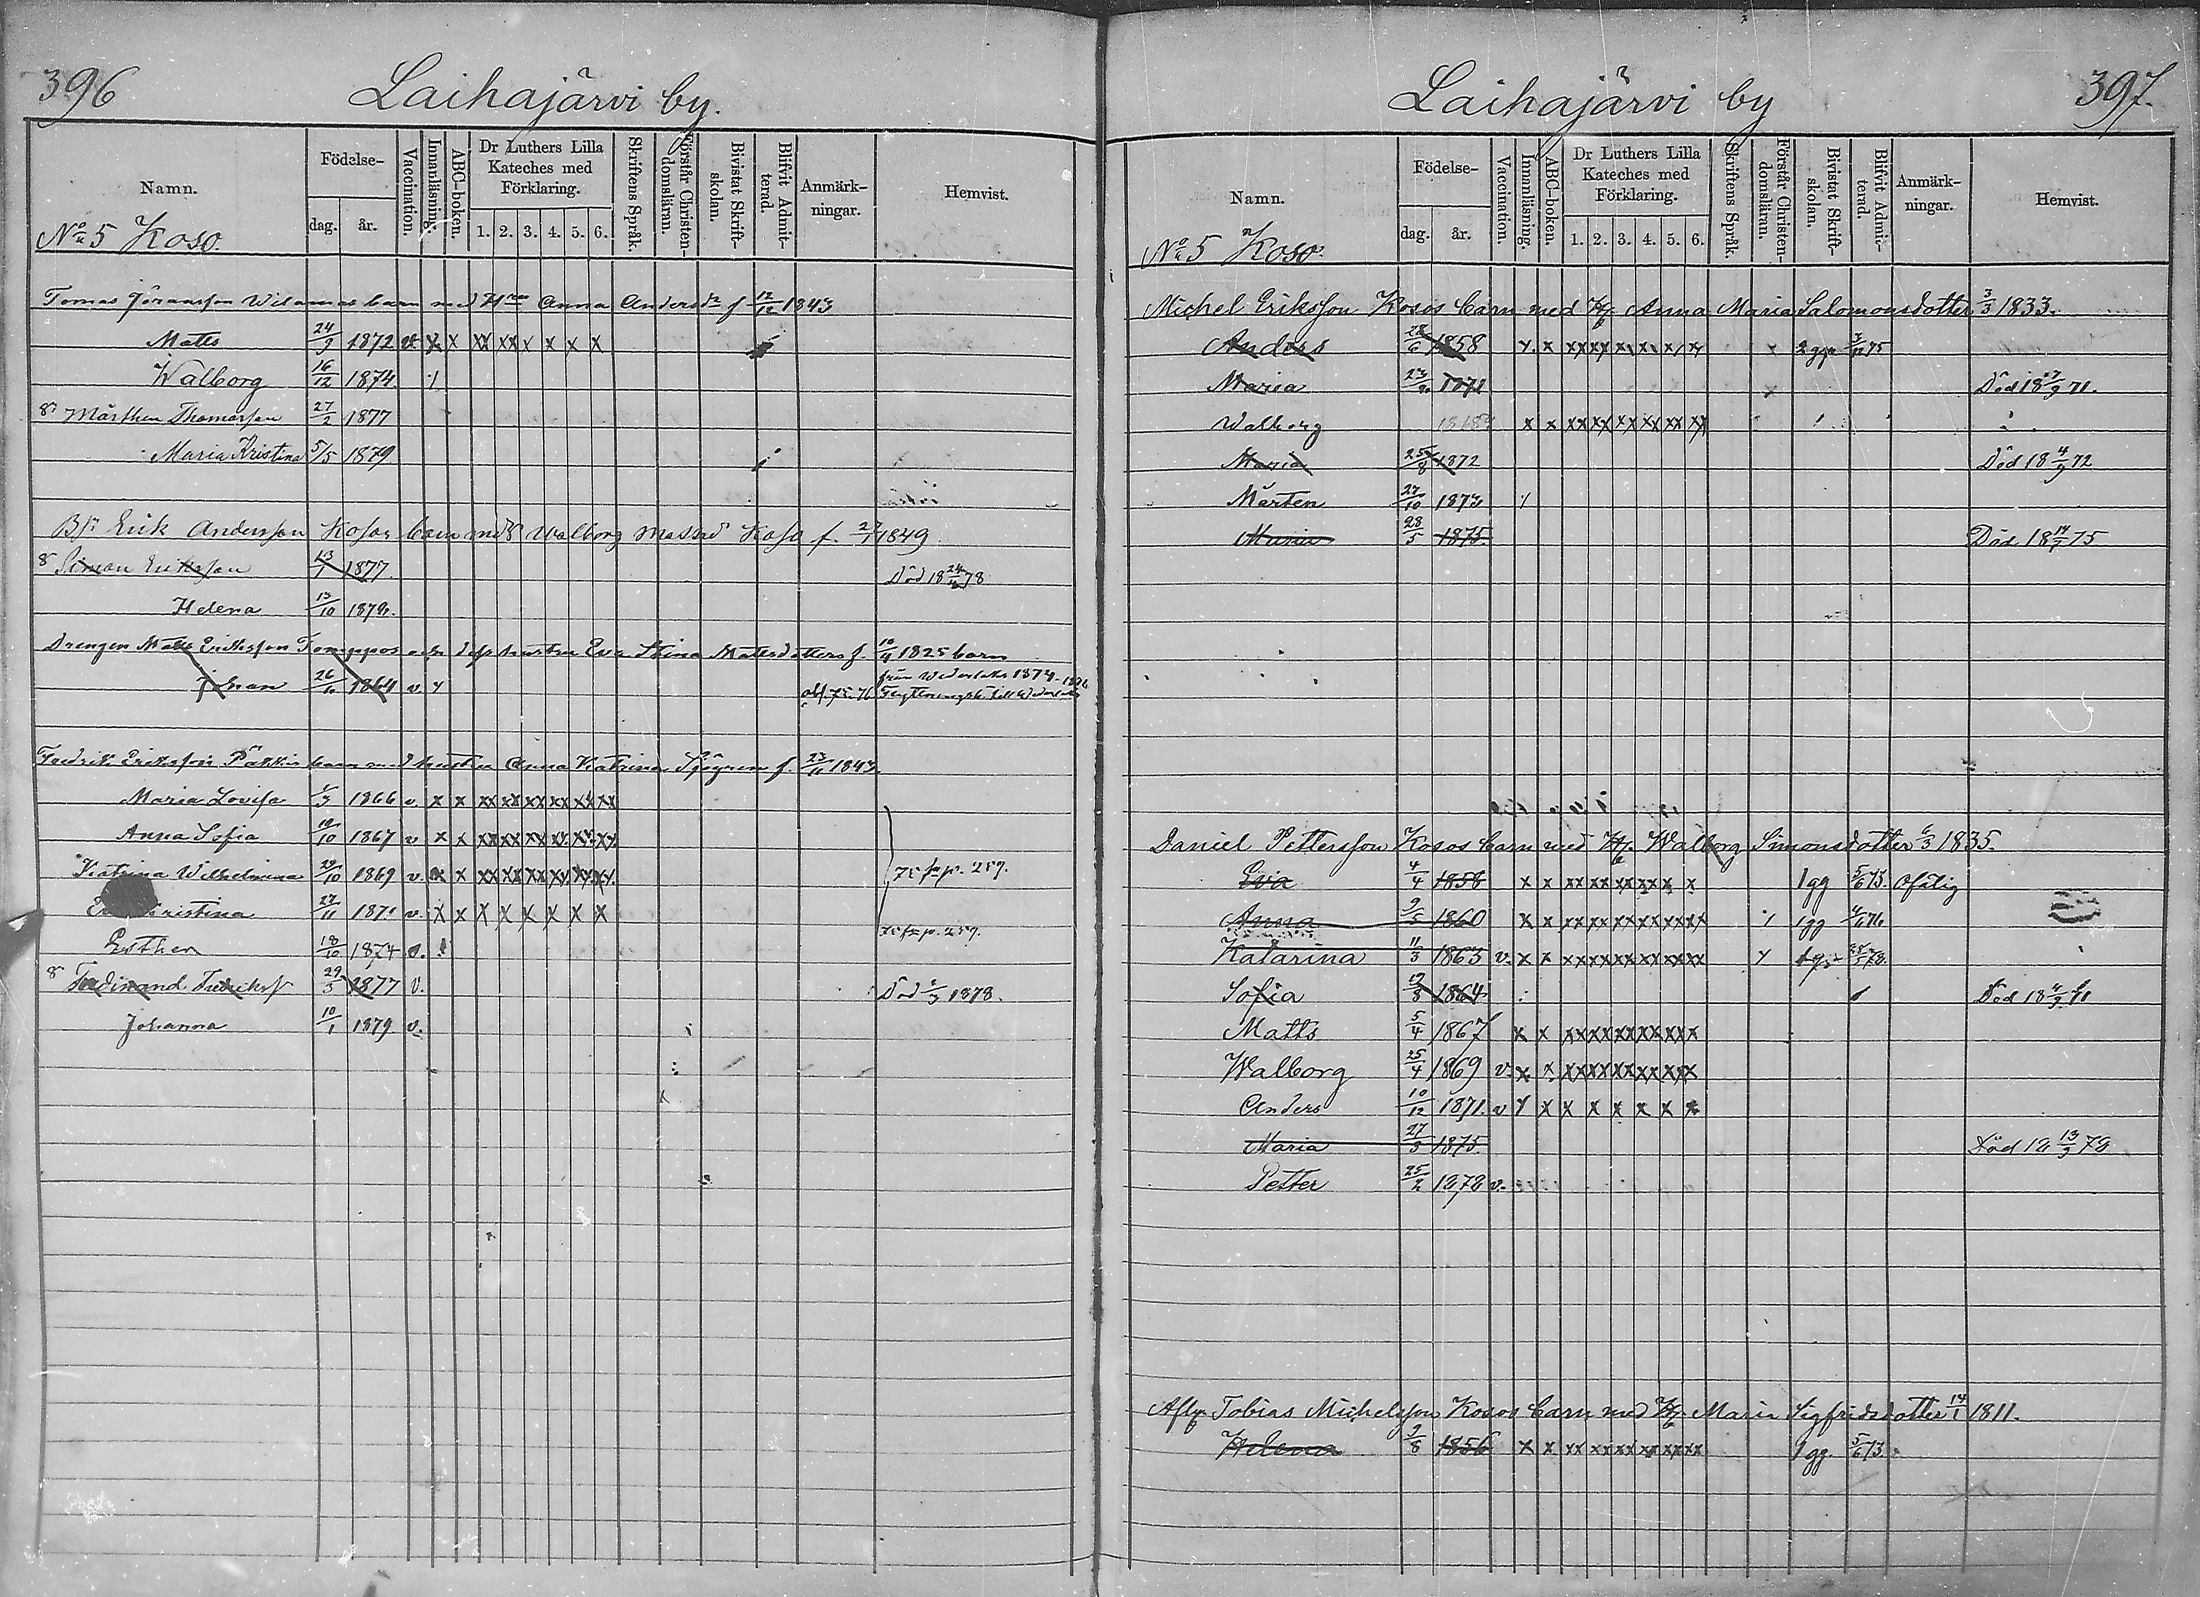 396
Laihajärvi by.
Namn.
Födelse-
dag.
år.
Vaccination.
Innanläsning.
ABC-boken.
Dr Luthers Lilla
Kateches med
Förklaring.
1. 2. 3. 4. 5. 6.
Skriftens Språk.
Förstår Christen-
domsläran.
Bivistat Skrift-
skolan.
Blifvit Admit-
terad.
Anmärk-
ningar.
Hemvist.
No 5 Koso.
Tomas Göransson barn med Anna Andersd f 12/12 1843
Matts 24/9 1872 v. x x xx xx x x x x
Walborg 16/12 1874
Mårthen Thomasson 27/2 1877
Maria Kristina 5/5 1879
Erik Andersson Kosos barn med Walborg Mattsd Koso f. 1849
Simon Eriksson 13/1 1877 Död 18 78
Helena 13/10 1879.
Drengen Matts Eriksson Tomppos och dess hustru Eva Stina Mattsdotters f. 1825 barn
Johan 26/6 1864 v.
Fredrik Eriksson barn med hustru Anna Katrina Sjögren f. 23/11 1843
Maria Lovisa 1866 v. x x xx xx xx xx xx xx
Anna Sofia 10/10 1867 v x x xx xx xx xx xx xx
Katrina Wilhelmina 29/10 1869 v. x x xx xx xx xx xx xx p. 257.
Kristina 27/11 1871 v. x x x x x x x x
p. 257.
Esther 18/10 1874 v.
Ferdinand Fredriksf 29/3 1877 v. Död 1878.
Johanna 10/1 1879 v.
397.
Laihajärvi by
Namn.
Födelse-
dag.
år.
Vaccination.
Innanläsning.
ABC-boken.
Dr Luthers Lilla
Kateches med
Förklaring.
1. 2. 3. 4. 5. 6.
Skriftens Språk.
Förstår Christen-
domsläran.
Bivistat Skrift-
skolan.
Blifvit Admit-
terad.
Anmärk-
ningar.
Hemvist.
No 5 Koso.
Michel Eriksson Kosos barn med H. Anna Maria Salomonsdotter 3/3 1833.
Anders 28/6 1858 x x xx xx xx xx xx xx 2 gg 75
Maria Död 18 71.
Walborg x x xx xx xx xx xx xx
Maria 25/8 1872 Död 18 4/9 72
Mårten 27/10 1873
Maria 28/5 1875 Död 18 75
Daniel Pettersson Kosos barn med H. Walborg Simonsdotter 6/3 1835.
Eva 4/4 1858 x x xx xx xx xx x x 1 gg 5/6 73. Ofälig
Anna 9/5 1860 x x xx xx xx xx xx xx 1 gg 4/6 76
Katarina 11/3 1863 v. x x xx xx xx xx xx xx 78.
Sofia 12/8 1864 Död 18 71
Matts 5/4 1867 x x xx xx xx xx xx xx
Walborg 25/4 1869 v. x x xx xx xx xx xx xx
Anders 10/12 1871. v x x x x x x x
Maria 27/3 1875. Död 18 13/3 78
Petter 25/2 1878 v.
Tobias Michelsson Kosos barn med H. Maria Sigfridsdotter 14/1 1811.
Helena 9/8 1856 x x xx xx xx xx xx xx 1 gg. 5/6 73.